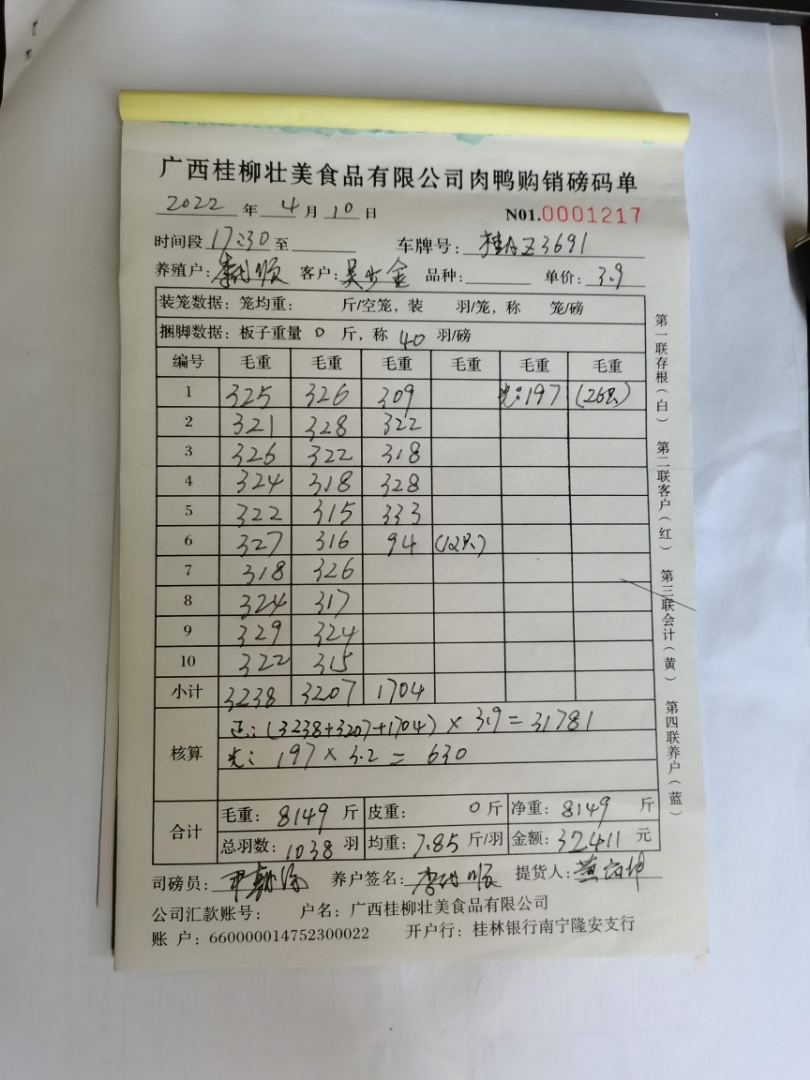 广西桂柳壮美食品有限公司肉鸭购销磅码单
2022 年 4 月 10 日 N01.0001217
时间段 17:30 至 车牌号: 桂 Z3691
养殖户: 李 顺 客户: 吴少金 品种: 单价: 3.9
装笼数据: 笼均重: 斤/空笼, 装 羽/笼, 称 笼/磅
捆脚数据: 板子重量 0 斤, 称 40 羽/磅
编号 毛重 毛重 毛重 毛重 毛重 毛重
1 325 326 309 光:197 (26只)
2 321 328 322
3 326 322 318
4 324 318 328
5 322 315 333
6 327 316 94 (12只)
7 318 326
8 324 317
9 329 324
10 322 315
小计 3238 3207 1704
核算 正:(3238+3207+1704)×3.9=31781
光: 197×3.2= 630
合计 毛重: 8149 斤 皮重: 0 斤 净重: 8149 斤
总羽数: 1038 羽 均重: 7.85 斤/羽 金额: 32411 元
司磅员: 养户签名: 李 顺 提货人: 黄
公司汇款账号: 户名: 广西桂柳壮美食品有限公司
账 户: 660000014752300022 开户行: 桂林银行南宁隆安支行
第一联存根(白) 第二联客户(红) 第三联会计(黄) 第四联养户(蓝)